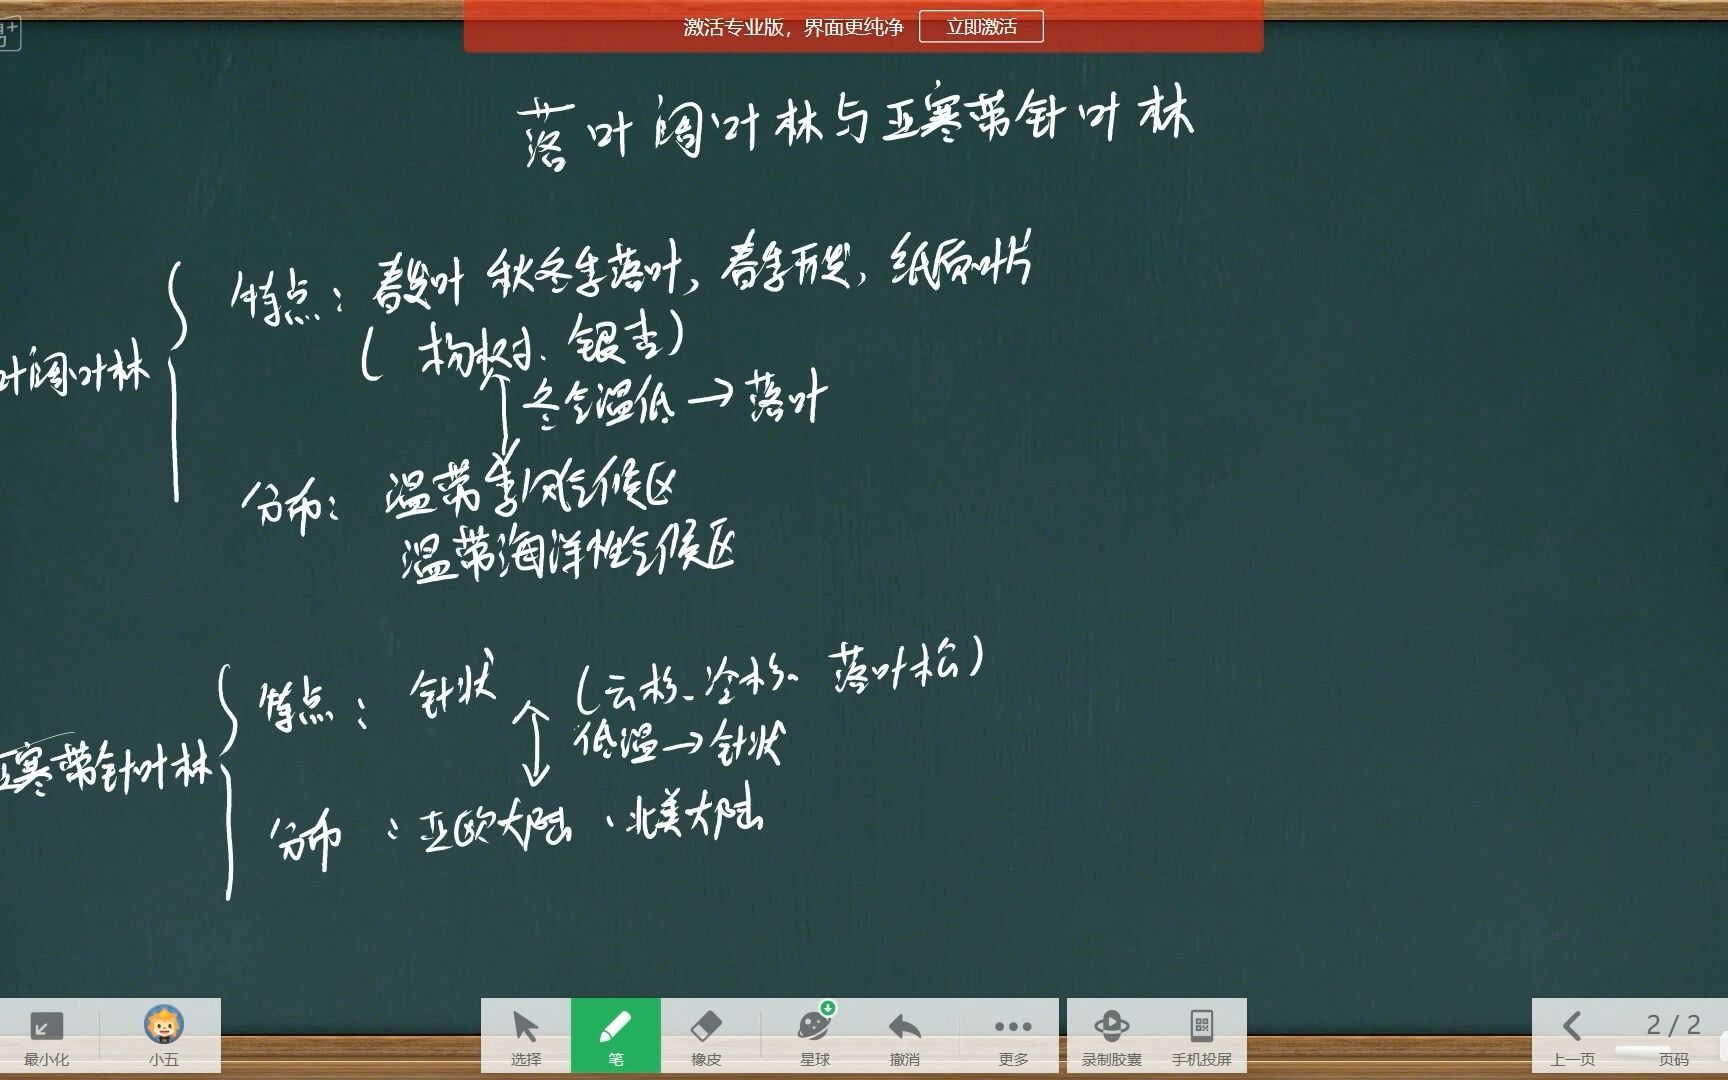 激活专业版，界面更纯净 立即激活
落叶阔叶林与亚寒带针叶林
特点：春发叶 秋冬季落叶，春季开发，纸质叶片
（杨树、银杏）
叶阔叶林
冬气温低→落叶
分布：温带季风气候区
温带海洋性气候区
特点：针状（云杉、冷杉、落叶松）
低温→针状
亚寒带针叶林
分布：亚欧大陆、北美大陆
最小化 小五 选择 笔 橡皮 星球 撤消 更多 录制胶囊 手机投屏 上一页 2/2 页码